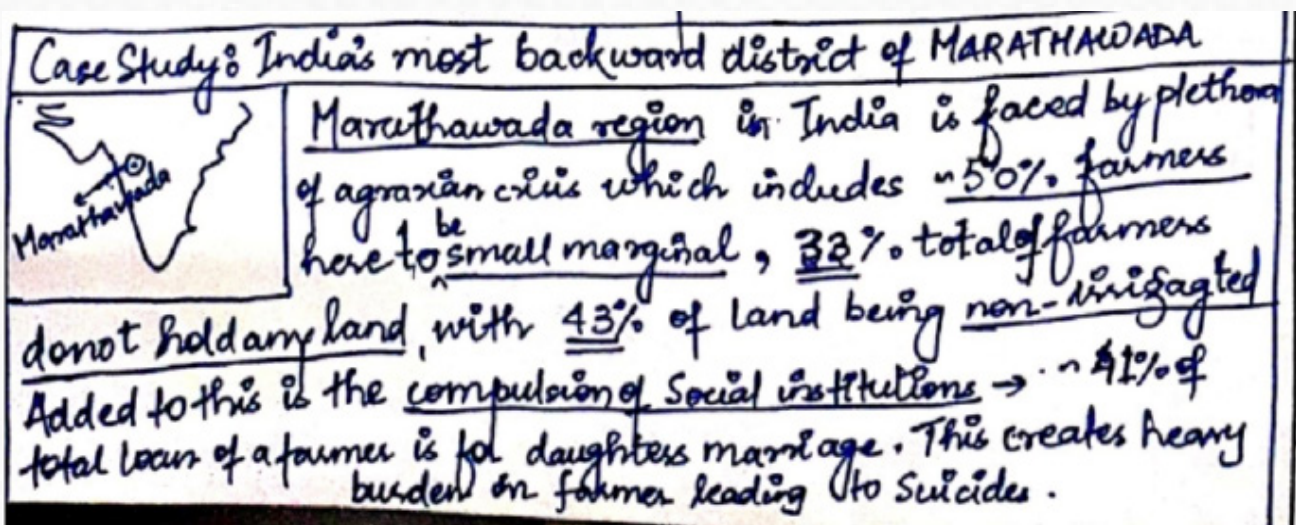 Case Study: India's most backward district of MARATHAWADA
Marathawada
Marathawada region in India is faced by plethora
of agrarian crisis which includes ~50% farmers
here to be small marginal, 33% total of farmers
donot hold any land, with 43% of land being non-irrigagted
Added to this is the compulsion of Social institutions → ~41% of
total loan of a farmer is for daughters marriage. This creates heavy
burden on farmer leading to Suicides.